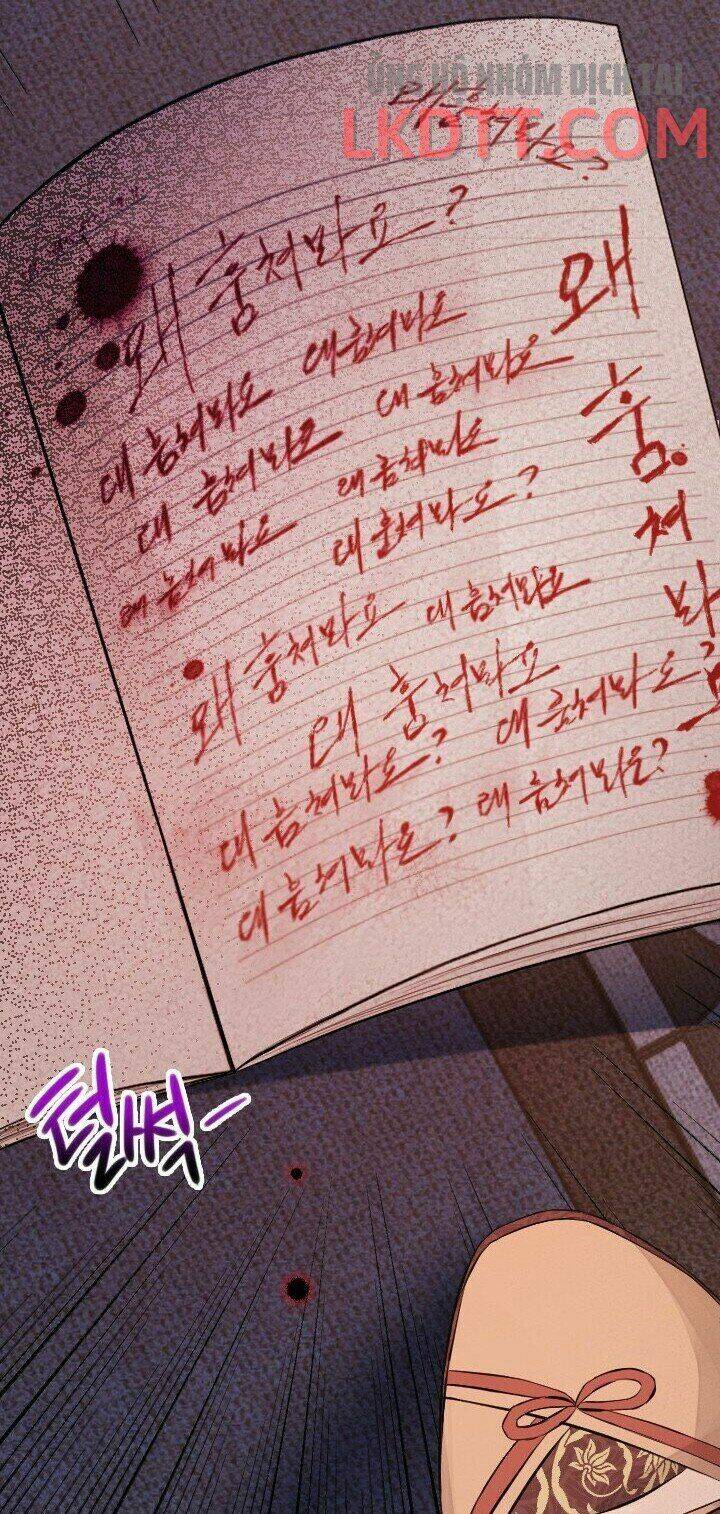 ỦNG HỘ NHÓM DỊCH TẠI
LKDTT.COM
왜 훔쳐봐요?
왜 훔쳐봐요
왜 훔쳐봐요
왜 훔쳐봐요
왜 훔쳐봐요
왜 훔쳐봐요
왜 훔쳐봐요
왜 훔쳐봐요?
왜 훔쳐봐요
왜 훔쳐봐요
왜 훔쳐봐요
왜 훔쳐봐요?
왜 훔쳐봐요?
왜 훔쳐봐요?
왜 훔쳐봐요?
왜
훔
쳐
봐
요
털썩-